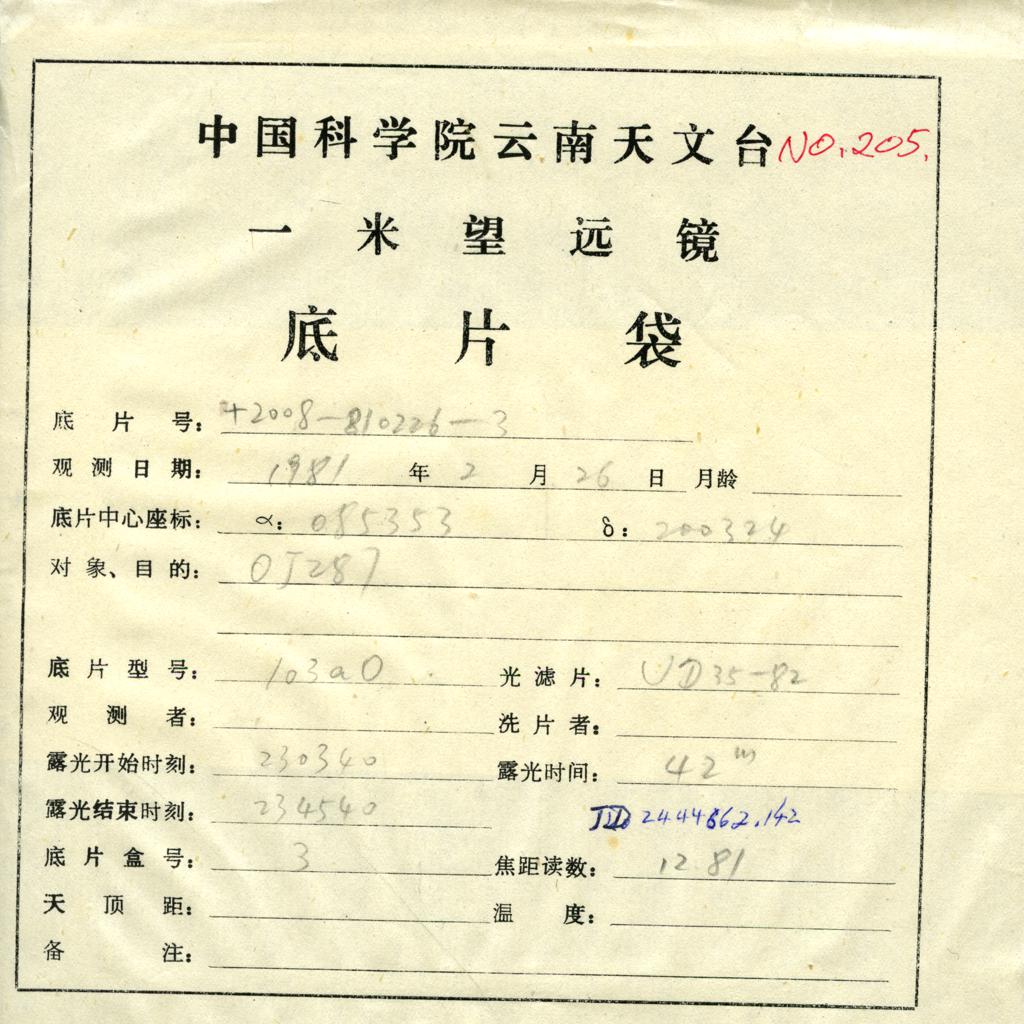 中国科学院云南天文台 NO.205.
一米望远镜
底片袋
底片号: +2008-810226-3
观测日期: 1981 年 2 月 26 日 月龄
底片中心座标: α: 085353 δ: 200324
对象、目的: OJ287
底片型号: 103aO 光滤片: UD35-82
观测者: 洗片者:
露光开始时刻: 230340 露光时间: 42m
露光结束时刻: 234540 2444662.142
底片盒号: 3 焦距读数: 12.81
天顶距: 温度:
备注: